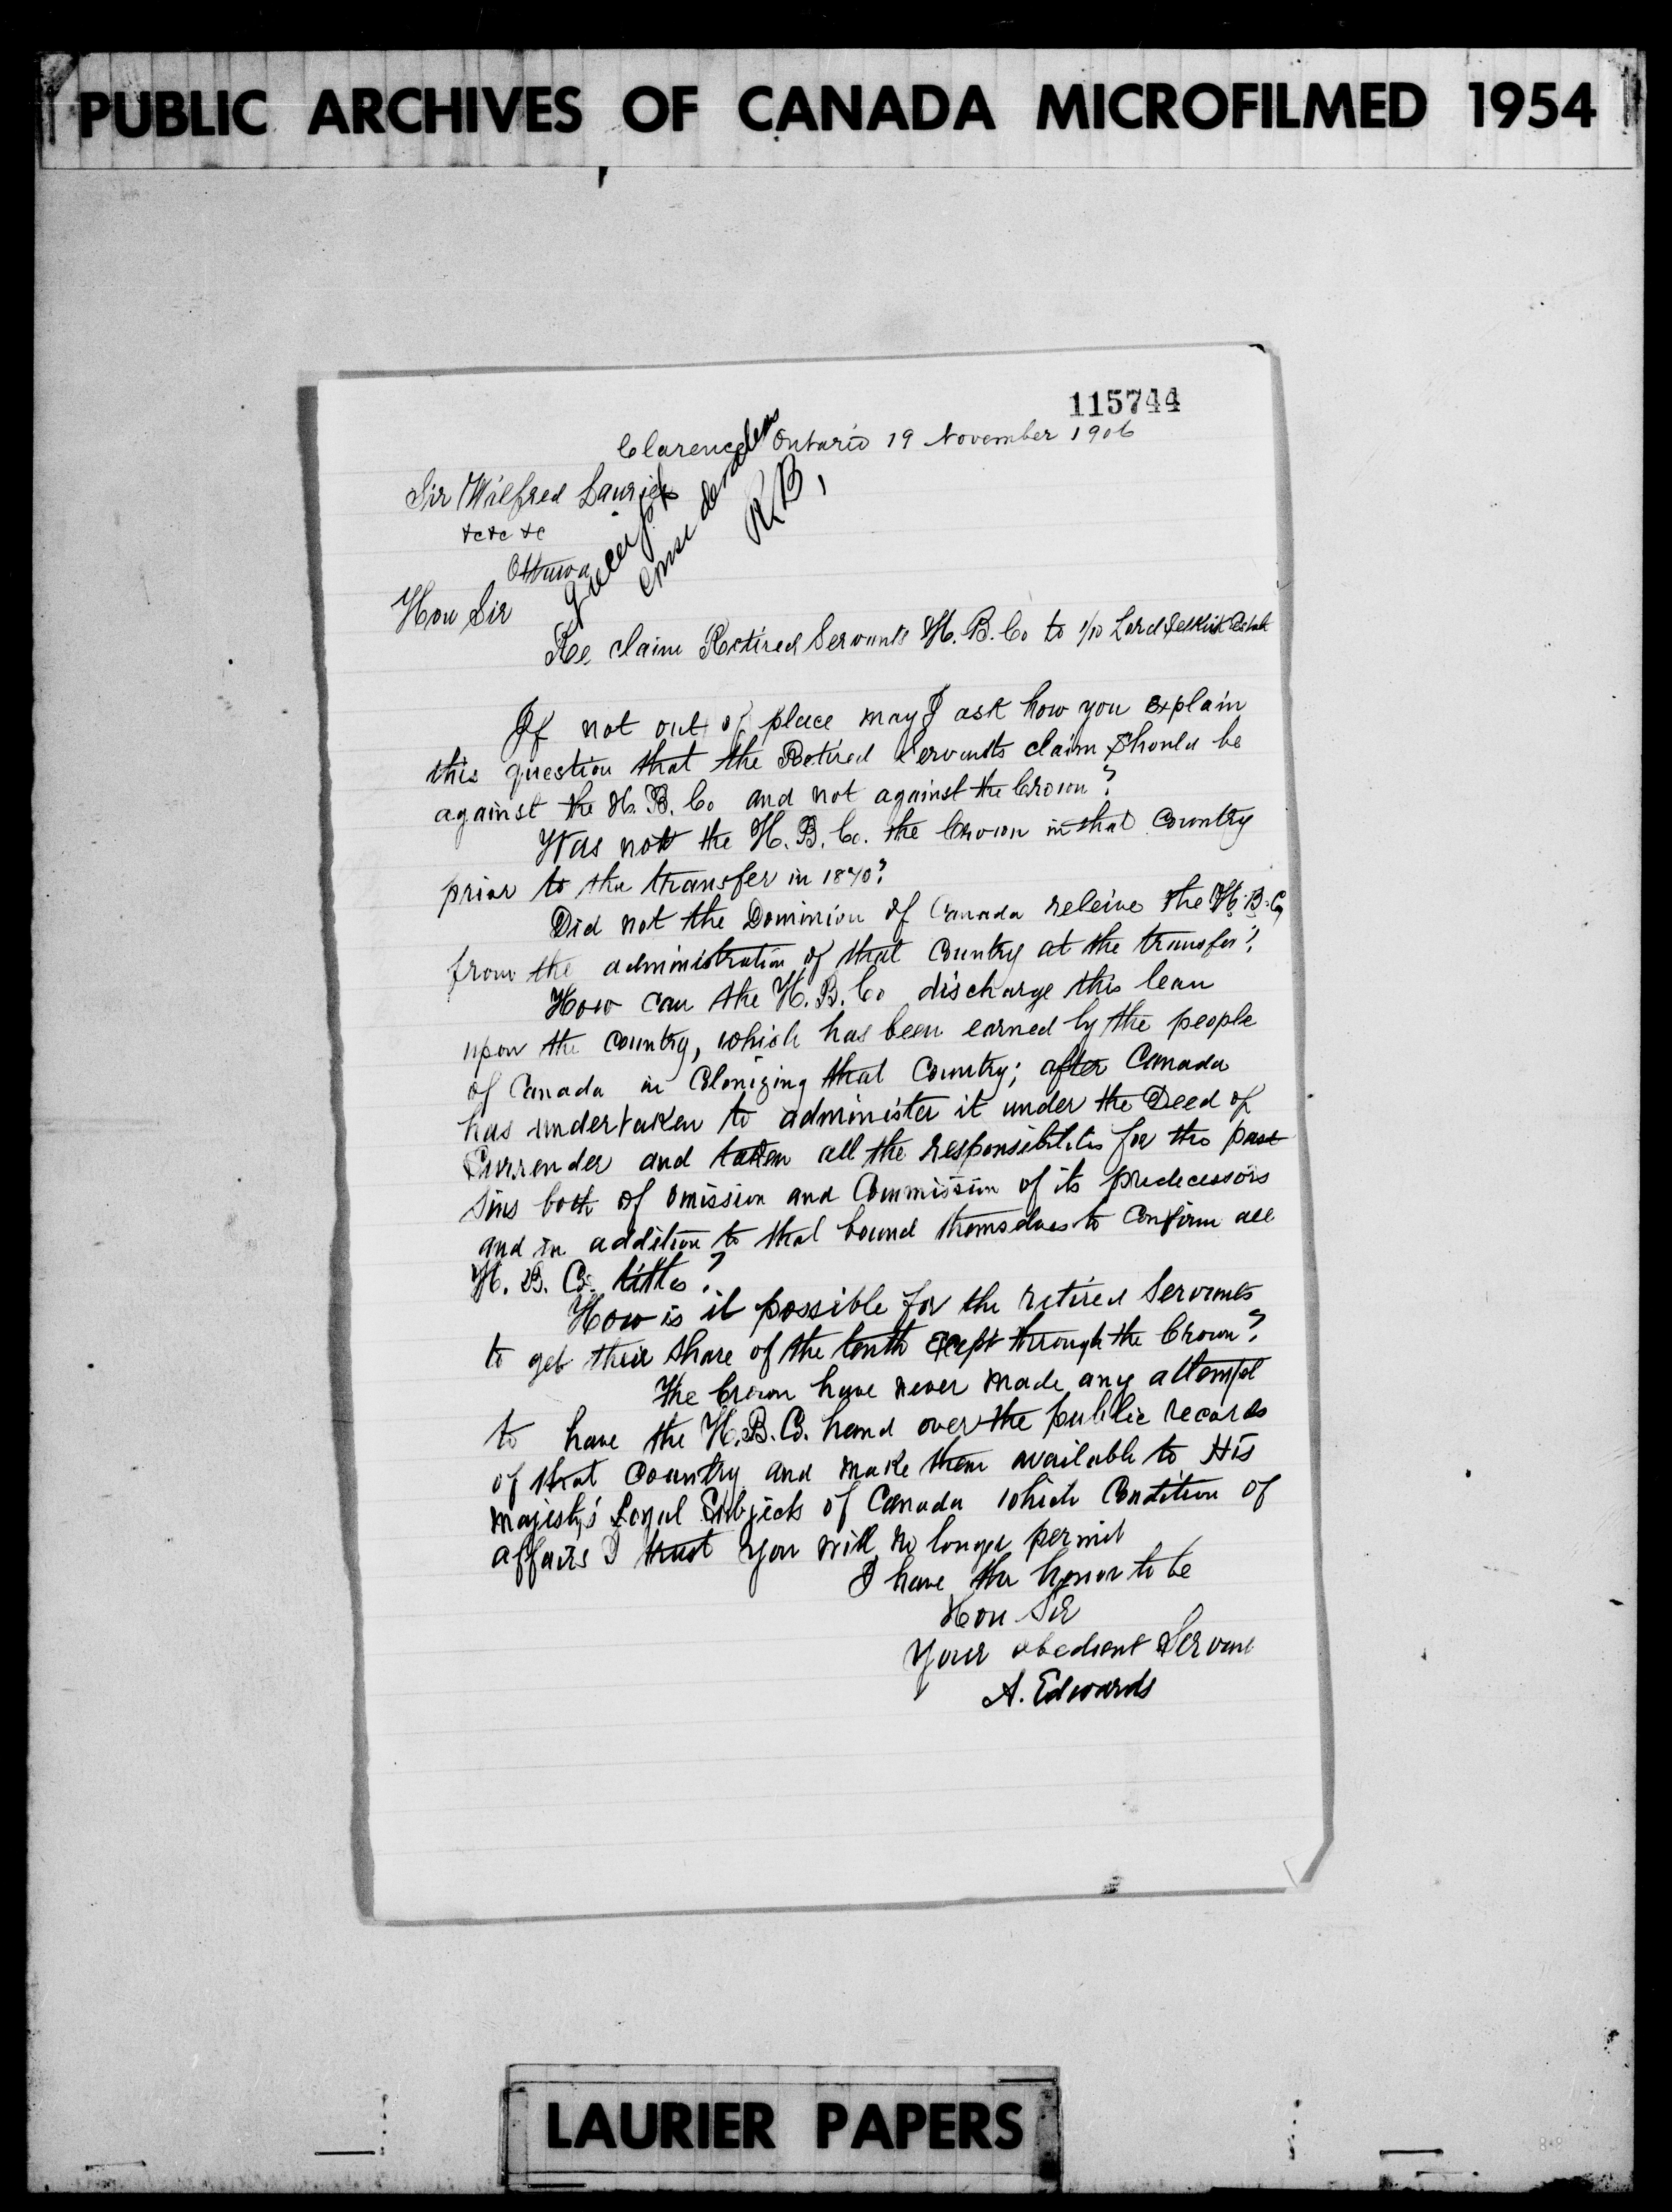 PUBLIC ARCHIVES OF CANADA MICROFILMED 1954
115744
Clarence Ontario 19 November 1906
Sir Wilfred Laurier
&c &c &c
Ottawa
Hon Sir
R,B,
Re claim Retired Servants H. B. Co to 1/10 Lord Selkirk Estate
If not out of place may I ask how you explain
this question that the Retired Servants claim should be
against the H. B. Co and not against the Crown?
Was not the H. B. Co. the Crown in that Country
prior to the transfer in 1870?
Did not the Dominion of Canada releive the H. B. Co
from the administration of that Country at the transfer?
How can the H. B. Co discharge this lean
upon the Country, which has been earned by the people
of Canada in Colonizing that Country; after Canada
has undertaken to administer it under the Deed of
Surrender and taken all the responsibilitis for the past
sins both of omission and Commission of its predecessors
and in addition to that bound themselves to confirm all
H. B. Co. titles?
How is it possible for the retired Servants
to get their share of the tenth except through the Crown?
The Crown have never made any attempt
to have the H. B. Co. hand over the public records
of that Country and make them available to His
Majesty's Loyal Subjects of Canada which Condition of
affairs I trust you will no longer permit
I have the honor to be
Hon Sir
Your obedient Servant
A. Edwards
LAURIER PAPERS